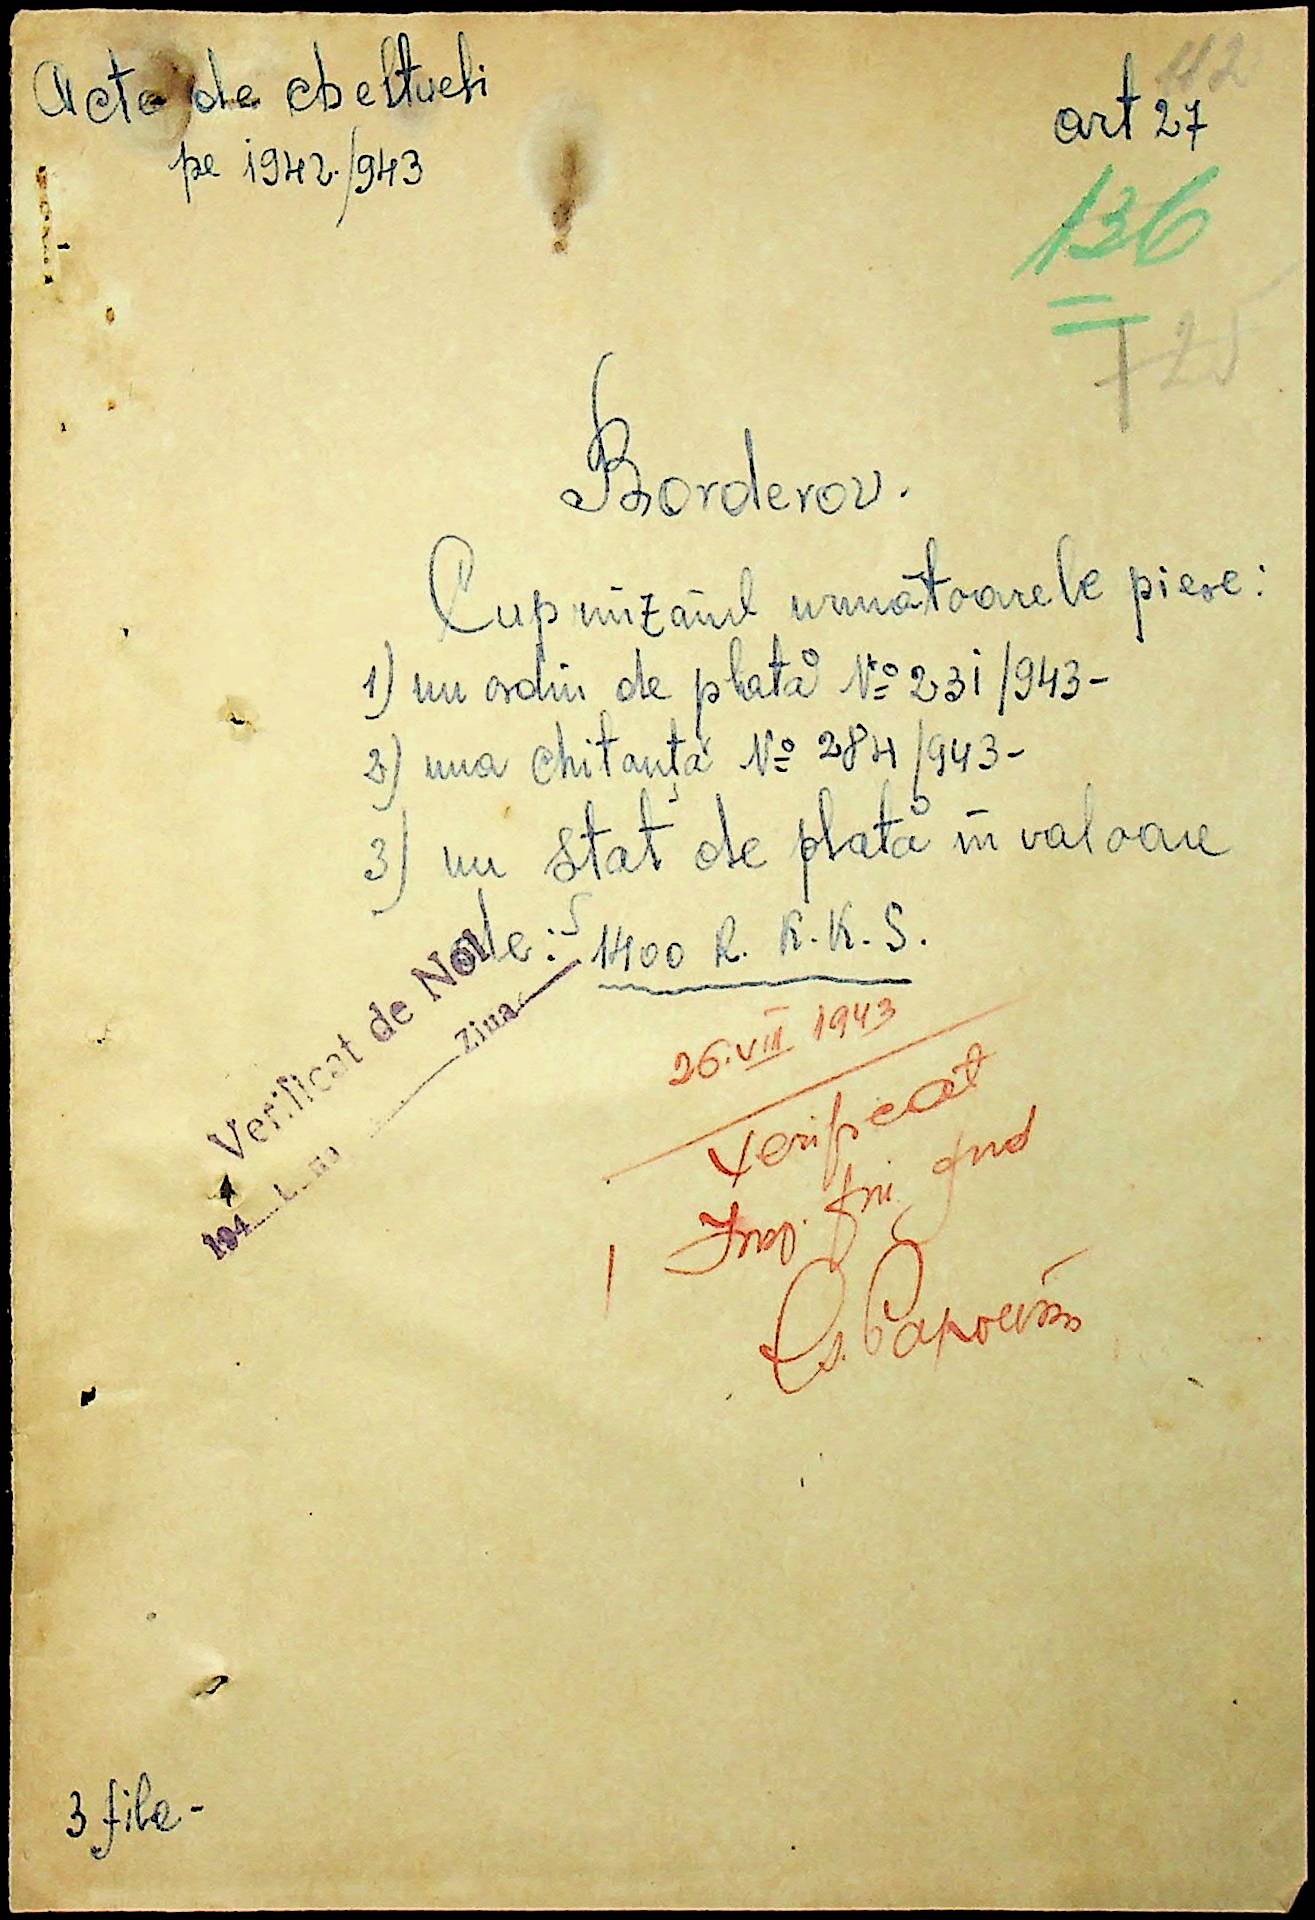 Acte de cheltueli
pe 1942/943
112
art 27
136
125
Borderou.
Cuprinzând următoarele piese:
1) un ordin de plată № 231/943-
2) una chitanță № 284/943-
3) un stat de plată în valoare
de: 1400 R. K. K. S.
Verificat de Noi
194 L na Ziua
26.VIII 1943
Verificat
Insp. fin.
3 file-